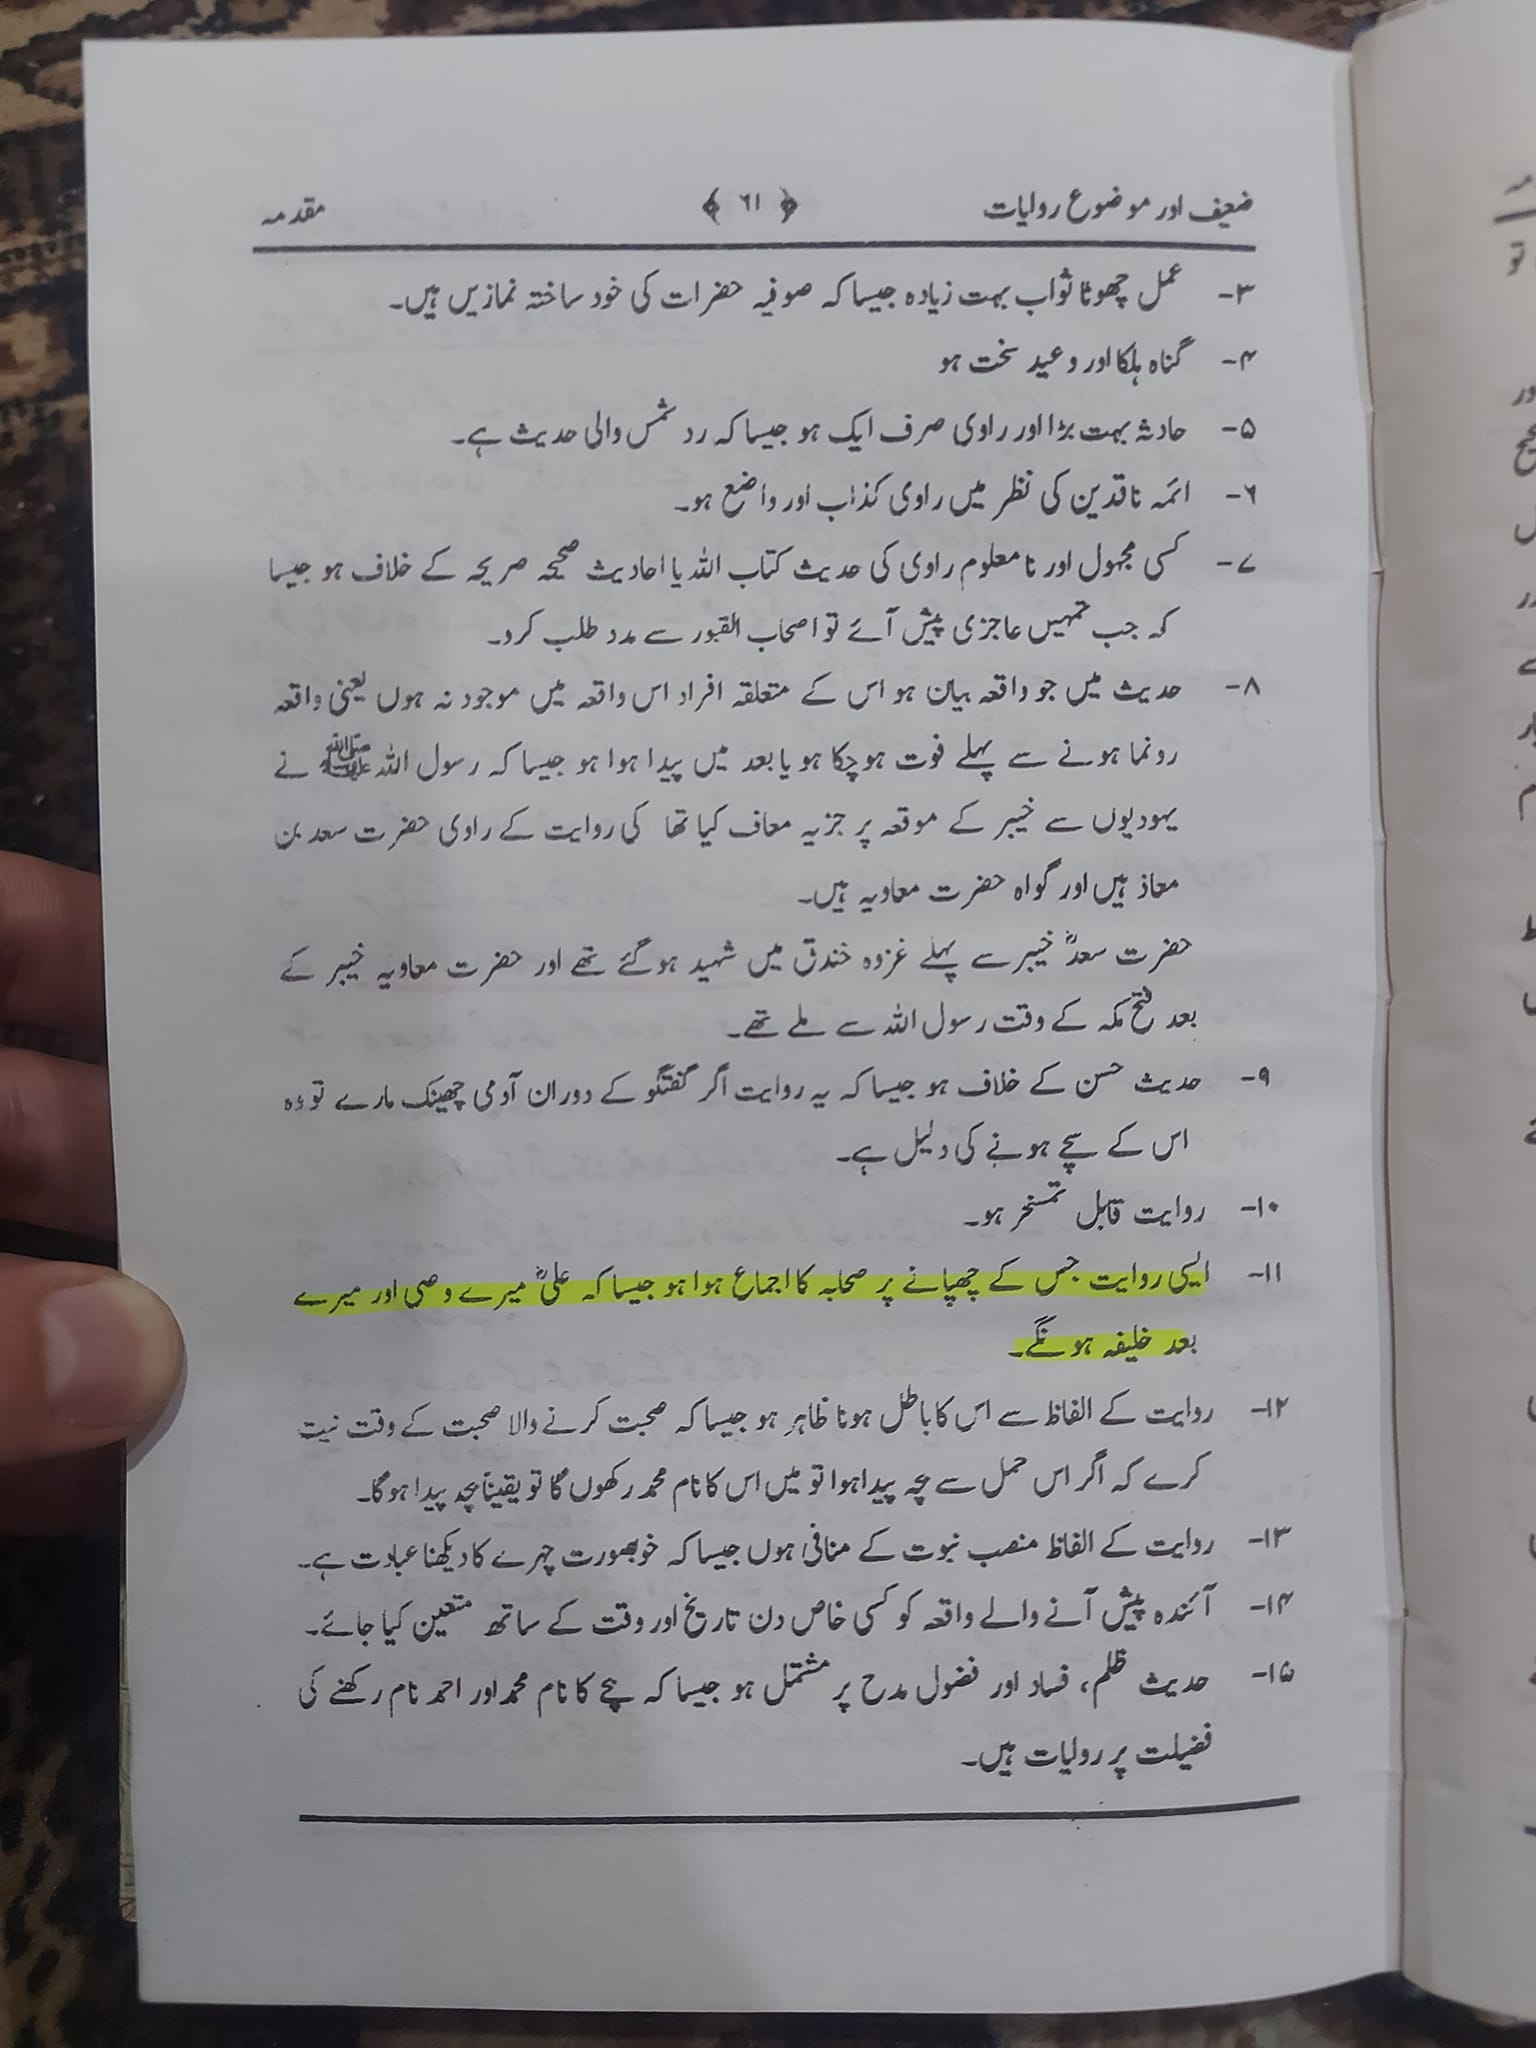 ضعیف اور موضوع روایات ﴿ ٦١ ﴾ مقدمہ
۳- عمل چھوٹا ثواب بہت زیادہ جیسا کہ صوفیہ حضرات کی خود ساختہ نمازیں ہیں۔
۴- گناہ ہلکا اور وعید سخت ہو
۵- حادثہ بہت بڑا اور راوی صرف ایک ہو جیسا کہ رد شمس والی حدیث ہے۔
۶- ائمہ ناقدین کی نظر میں راوی کذاب اور واضع ہو۔
۷- کسی مجہول اور نامعلوم راوی کی حدیث کتاب اللہ یا احادیث صحیحہ صریحہ کے خلاف ہو جیسا
کہ جب تمہیں عاجزی پیش آئے تو اصحاب القبور سے مدد طلب کرو۔
۸- حدیث میں جو واقعہ بیان ہو اس کے متعلقہ افراد اس واقعہ میں موجود نہ ہوں یعنی واقعہ
رونما ہونے سے پہلے فوت ہو چکا ہو یا بعد میں پیدا ہوا ہو جیسا کہ رسول اللہ ﷺ نے
یہودیوں سے خیبر کے موقعہ پر جزیہ معاف کیا تھا کی روایت کے راوی حضرت سعد بن
معاذ ہیں اور گواہ حضرت معاویہ ہیں۔
حضرت سعدؓ خیبر سے پہلے غزوہ خندق میں شہید ہو گئے تھے اور حضرت معاویہ خیبر کے
بعد فتح مکہ کے وقت رسول اللہ سے ملے تھے۔
۹- حدیث حسن کے خلاف ہو جیسا کہ یہ روایت اگر گفتگو کے دوران آدمی چھینک مارے تو وہ
اس کے سچے ہونے کی دلیل ہے۔
۱۰- روایت قابل تمسخر ہو۔
۱۱- ایسی روایت جس کے چھپانے پر صحابہ کا اجماع ہوا ہو جیسا کہ علیؓ میرے وصی اور میرے
بعد خلیفہ ہونگے۔
۱۲- روایت کے الفاظ سے اس کا باطل ہونا ظاہر ہو جیسا کہ صحبت کرنے والا صحبت کے وقت نیت
کرے کہ اگر اس حمل سے بچہ پیدا ہوا تو میں اس کا نام محمد رکھوں گا تو یقیناً بچہ پیدا ہوگا۔
۱۳- روایت کے الفاظ منصب نبوت کے منافی ہوں جیسا کہ خوبصورت چہرے کا دیکھنا عبادت ہے۔
۱۴- آئندہ پیش آنے والے واقعہ کو کسی خاص دن تاریخ اور وقت کے ساتھ متعین کیا جائے۔
۱۵- حدیث ظلم، فساد اور فضول مدح پر مشتمل ہو جیسا کہ بچے کا نام محمد اور احمد نام رکھنے کی
فضیلت پر روایات ہیں۔